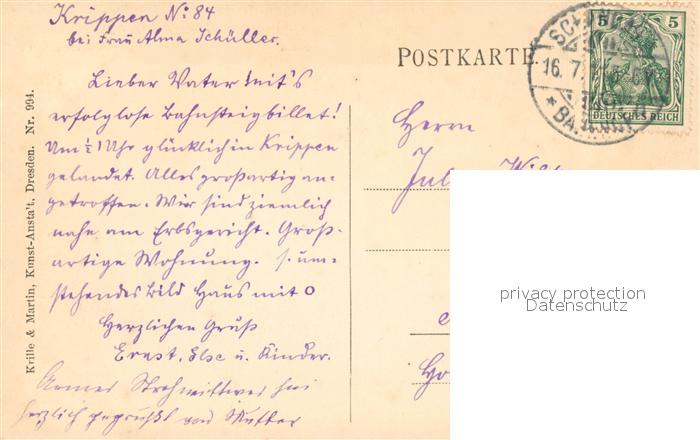 Krippen No: 84
bei Frau Alma Schüller.
Lieber Vater mit's
erfolglose Bahnsteigbillet!
Um ½1 Uhr glücklich in Krippen
gelandet. Alles großartig an-
getroffen. Wir sind ziemlich
nahe am Erbgericht. Groß-
artige Wohnung. s. um-
stehendes Bild Haus mit O
Herzlichen Gruß
Ernst, Else u. Kinder.
Armes Strohwittwer sei
herzlich gegrüßt von Mutter
Krille & Martin, Kunst-Anstalt, Dresden. Nr. 994.
POSTKARTE.
Herrn
16. 7.
5 5
DEUTSCHES REICH
privacy protection
Datenschutz